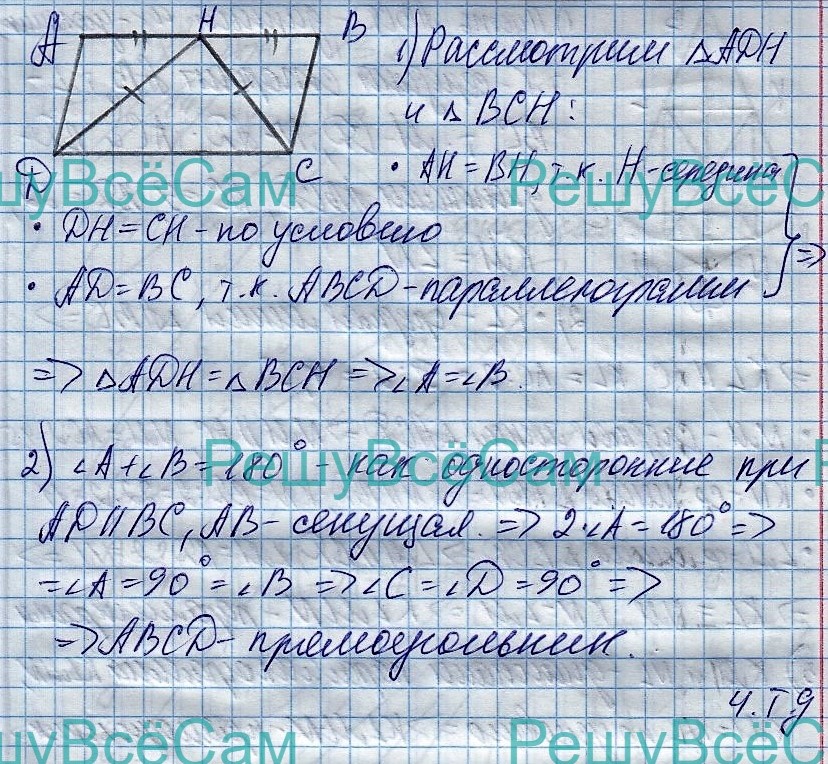 A H B
D C
1) Рассмотрим △ADH
и △BCH:
• AH = BH, т.к. H - середина
• DH = CH - по условию
• AD = BC, т.к. ABCD - параллелограмм =>
=> △ADH = △BCH => ∠A = ∠B.
2) ∠A + ∠B = 180° - как односторонние при
AD || BC, AB - секущая. => 2·∠A = 180° =>
= ∠A = 90° = ∠B => ∠C = ∠D = 90° =>
=> ABCD - прямоугольник.
ч.т.д
шуВсёСам РешуВсёС
РешуВсёСам
шуВсёСам РешуВсёС